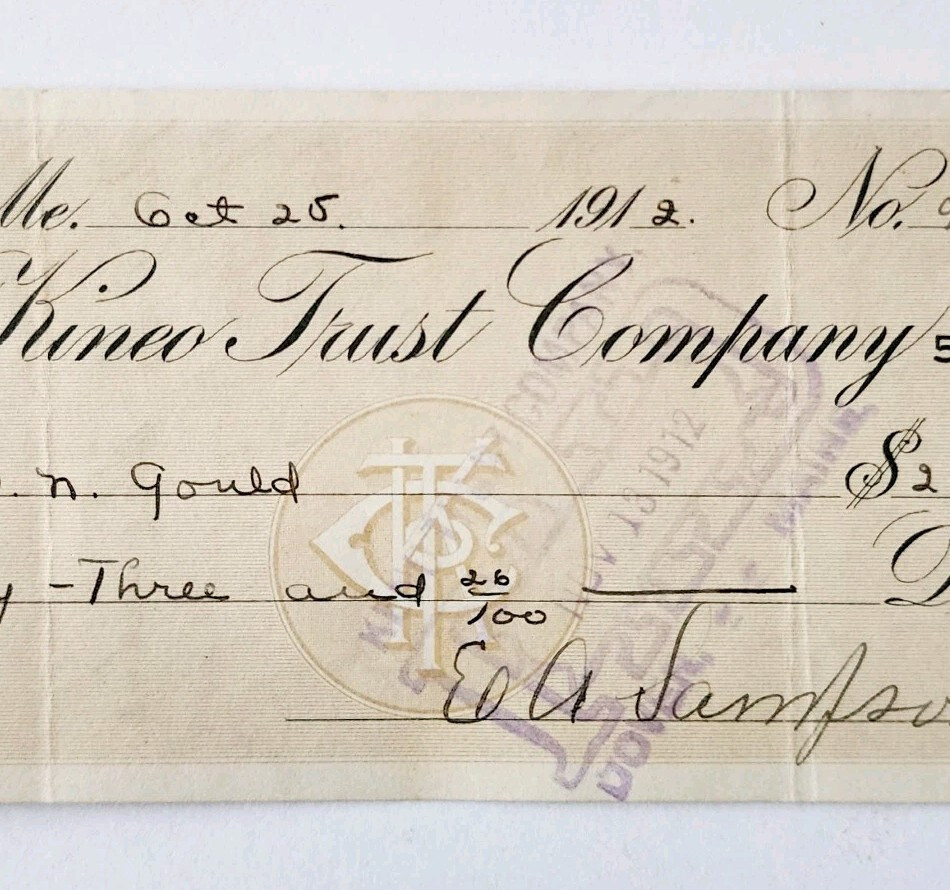 Me. Oct 25. 1912. No.
Kineo Trust Company
N. Gould $2
-Three and 26/100
E A Sampso
KTC
13 1912
DOVER, MAINE